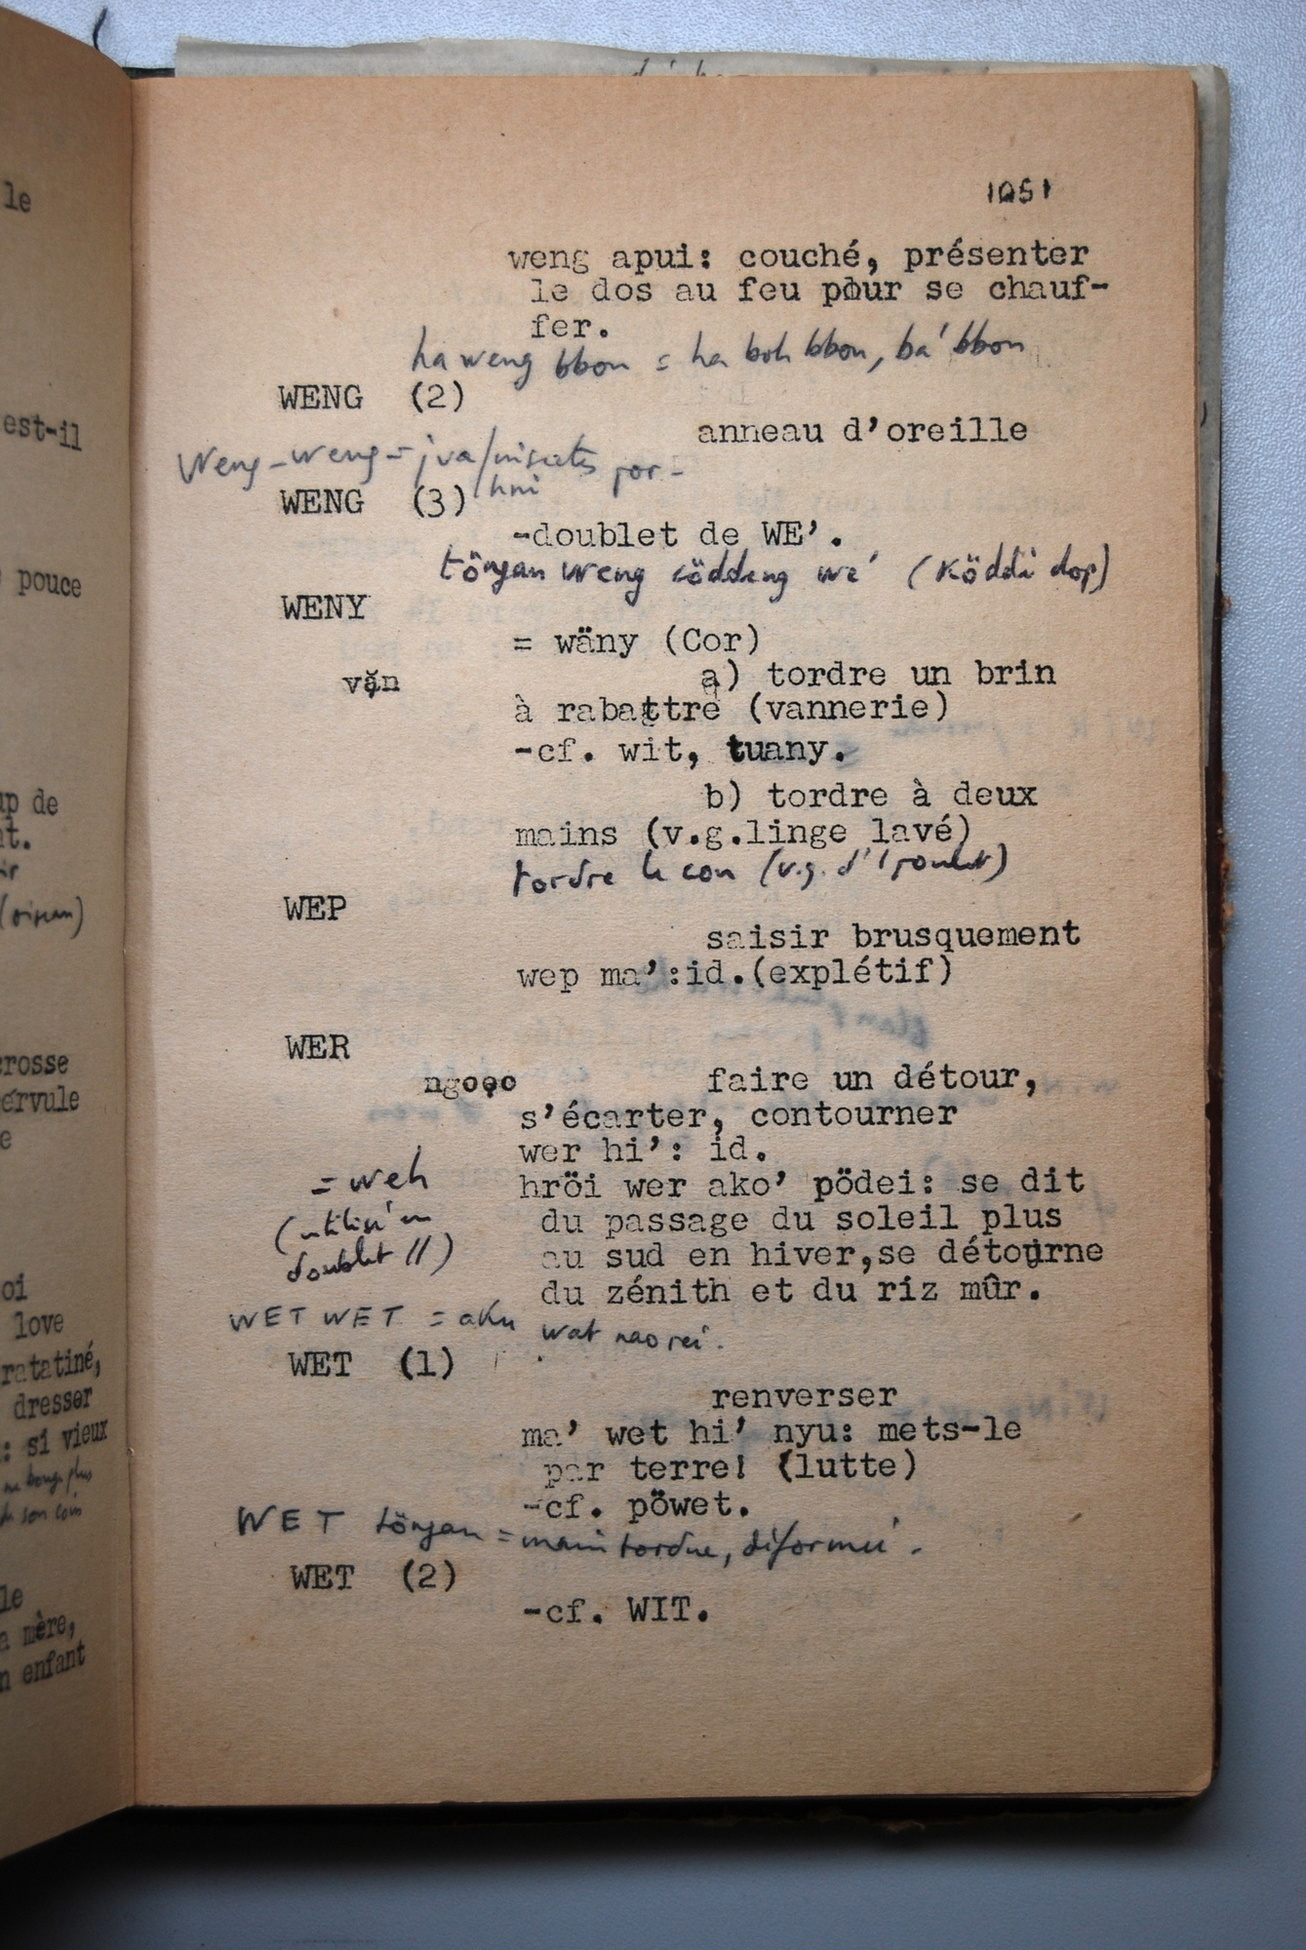 1051
weng apui: couché, présenter
le dos au feu pour se chauf-
fer.
ha weng bbon = ha boh bbon, ba' bbon
WENG (2)
anneau d'oreille
Weng-weng =
WENG (3)
-doublet de WE'.
töngan weng cöddeng we' (Köddi dop)
WENY
= wäny (Cor)
a) tordre un brin
vặn
à rabattre (vannerie)
-cf. wit, tuany.
b) tordre à deux
mains (v.g.linge lavé)
tordre le cou (v.g. d'1 poulet)
WEP
saisir brusquement
wep ma':id.(explétif)
WER
ngoẹo faire un détour,
s'écarter, contourner
wer hi': id.
= weh
hröi wer ako' pödei: se dit
(utilisé en
du passage du soleil plus
doublet //)
au sud en hiver,se détourne
du zénith et du riz mûr.
WET WET = aku wat nao rei.
WET (1)
renverser
ma' wet hi' nyu: mets-le
par terre! (lutte)
-cf. pöwet.
WET töngan = main tordue, déformée.
WET (2)
-cf. WIT.
le
est-il
pouce
up de
nt.
ir
(oiseau)
crosse
e
oi
love
ratatiné,
dresser
: si vieux
ne bouge plus
de son coin
le
a mère,
n enfant